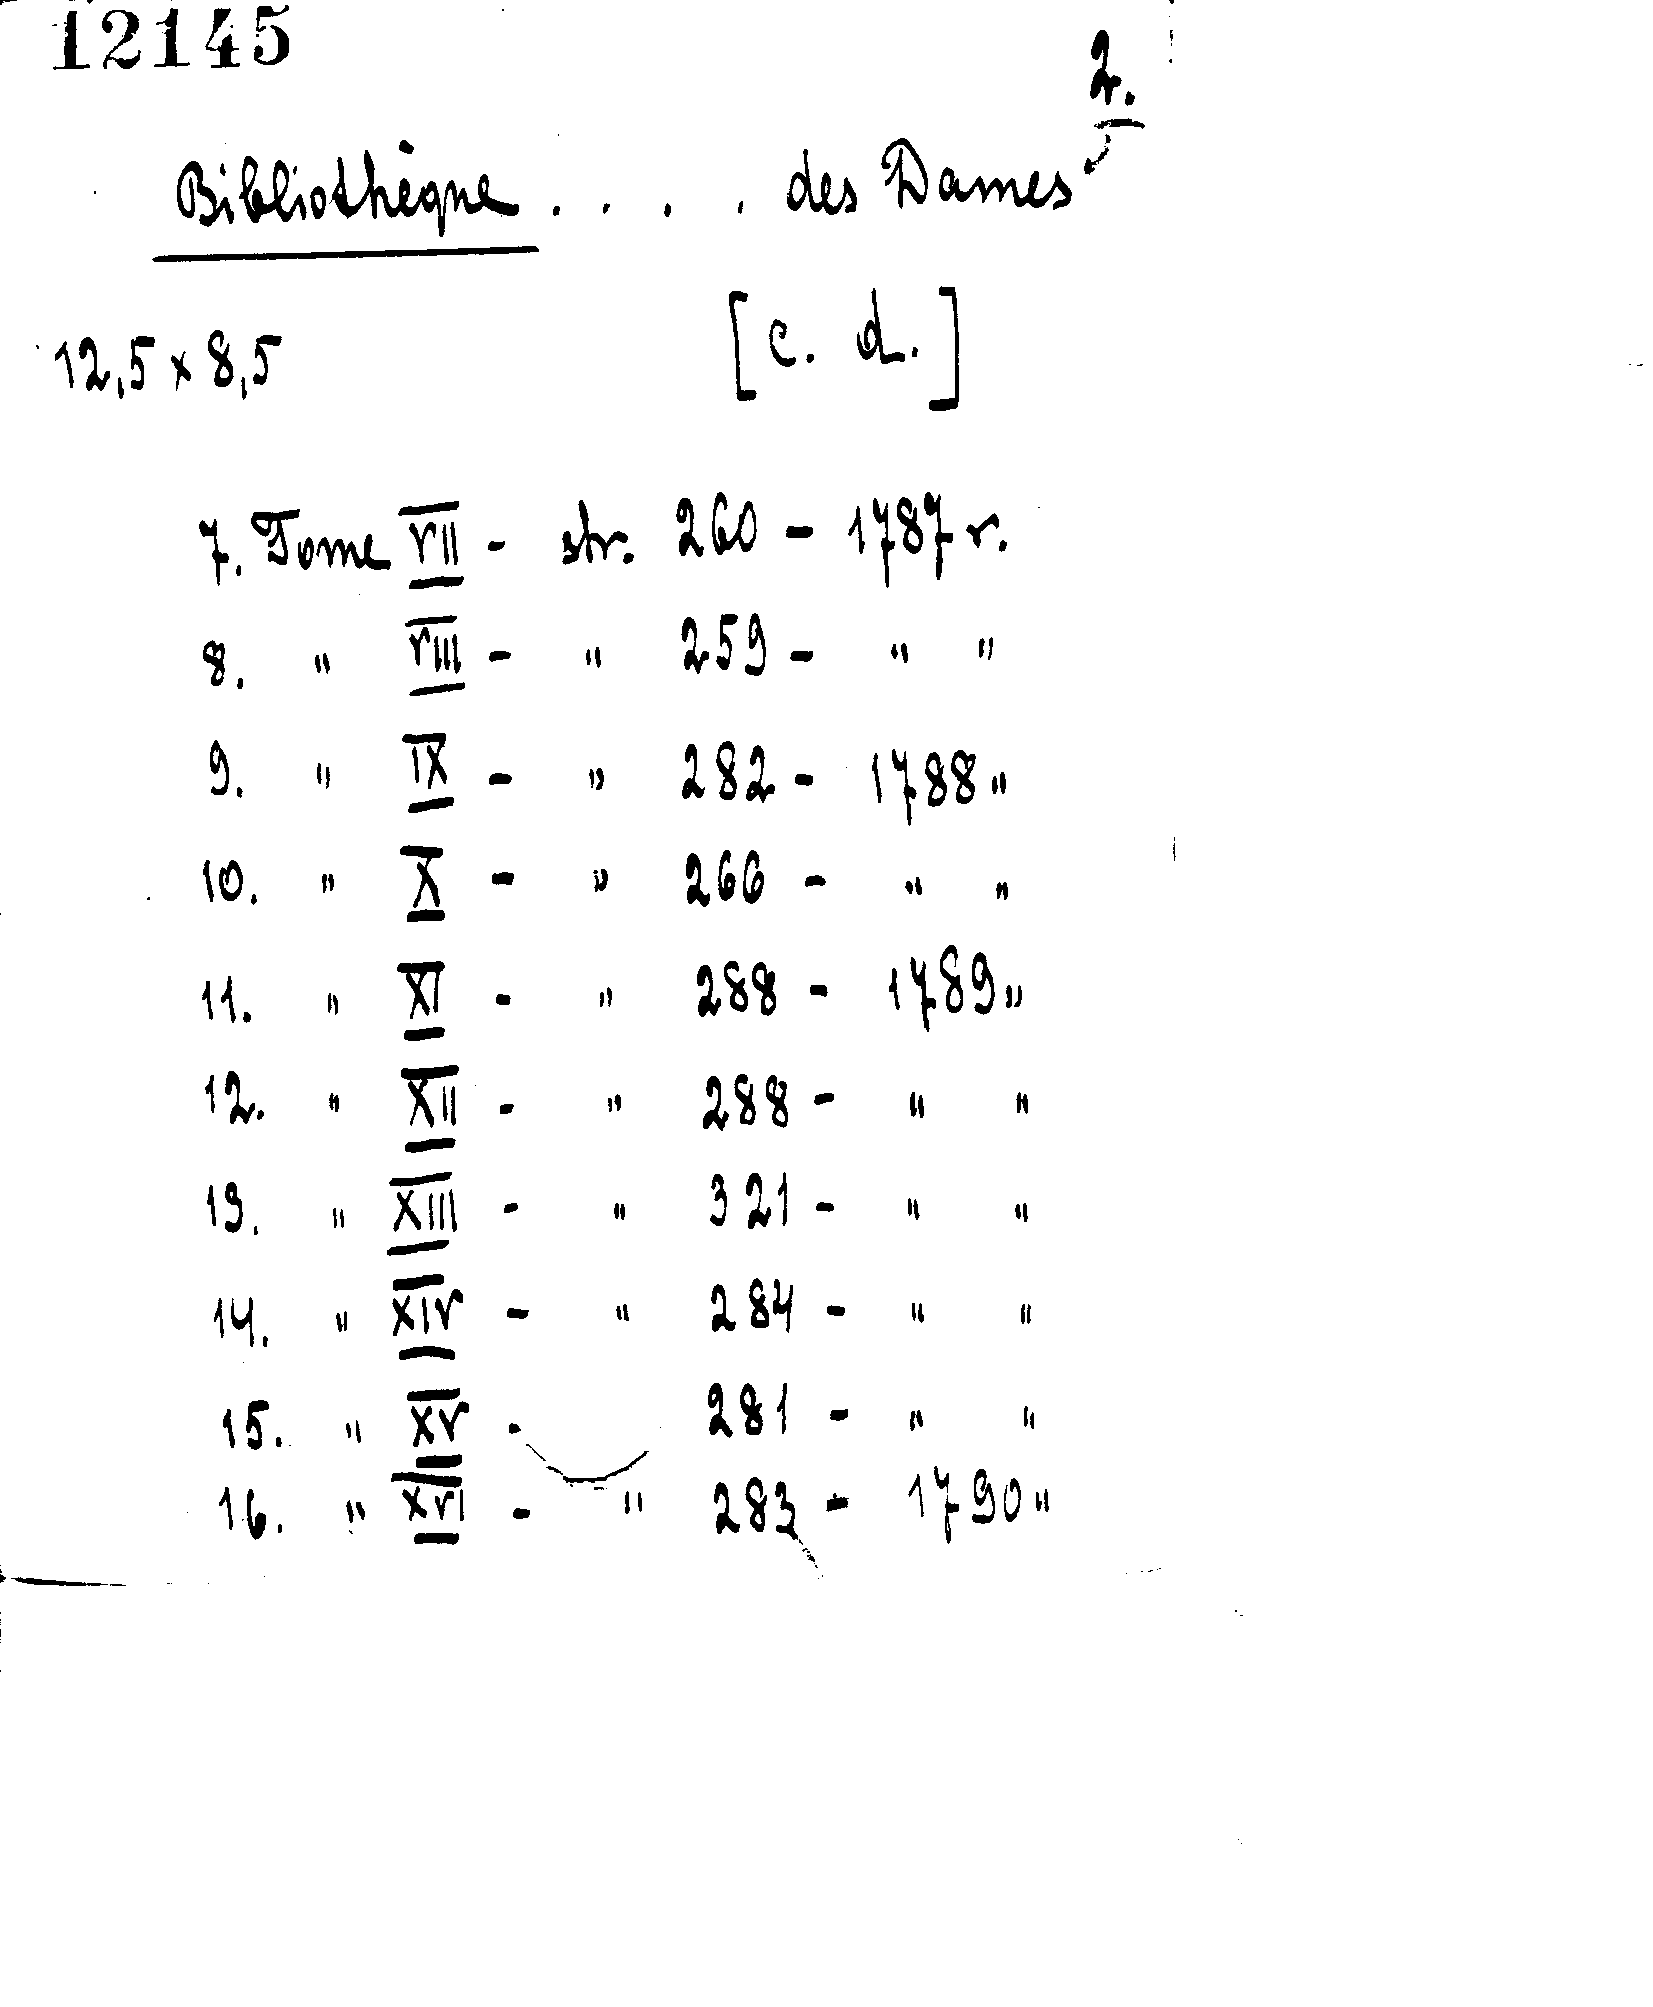 12145
2.
Bibliothèque . . . . des Dames
12,5 x 8,5 [c. d.]
7. Tome VII - str. 260 - 1787 r.
8. " VIII - " 259 - " "
9. " IX - " 282 - 1788 "
10. " X - " 266 - " "
11. " XI - " 288 - 1789 "
12. " XII - " 288 - " "
13. " XIII - " 321 - " "
14. " XIV - " 284 - " "
15. " XV - 281 - " "
16. " XVI - " 283 - 1790 "